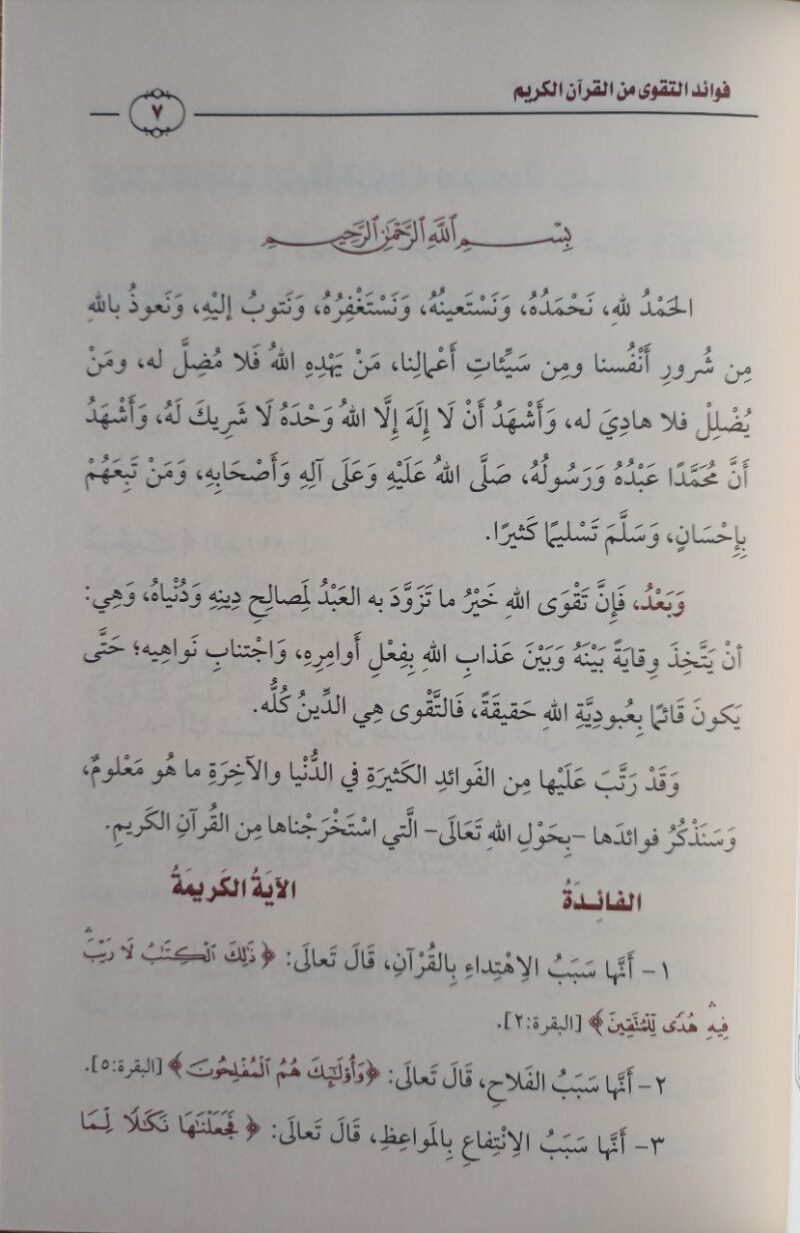 فوائد التقوى من القرآن الكريم
٧
بِسْمِ ٱللَّهِ ٱلرَّحْمَٰنِ ٱلرَّحِيمِ
الحَمْدُ للهِ، نَحْمَدُهُ، وَنَسْتَعينُهُ، وَنَسْتَغْفِرُهُ، وَنَتوبُ إليْهِ، وَنَعوذُ باللهِ
مِن شُرورِ أَنْفُسنا ومِن سَيِّئاتِ أَعْمالِنا، مَنْ يَهْدِهِ اللهُ فَلا مُضِلَّ له، ومَنْ
يُضْلِلْ فلا هادِيَ له، وَأَشْهَدُ أَنْ لَا إِلَهَ إِلَّا اللهُ وَحْدَهُ لَا شَرِيكَ لَهُ، وَأَشْهَدُ
أَنَّ مُحَمَّدًا عَبْدُهُ وَرَسُولُهُ، صَلَّى اللهُ عَلَيْهِ وَعَلَى آلِهِ وَأَصْحَابِهِ، وَمَنْ تَبِعَهُمْ
بِإِحْسَانٍ، وَسَلَّمَ تَسْليمًا كَثيرًا.
وَبَعْدُ، فَإِنَّ تَقْوَى اللهِ خَيْرُ ما تَزَوَّدَ به العَبْدُ لِمَصالِحِ دِينِهِ وَدُنْياهُ، وَهِي:
أنْ يَتَّخِذَ وِقايَةً بَيْنَهُ وَبَيْنَ عَذابِ اللهِ بِفِعْلِ أَوامِرِهِ، وَاجْتنابِ نَواهِيه؛ حَتَّى
يَكونَ قَائمًا بِعُبودِيَّةِ اللهِ حَقيقَةً، فَالتَّقْوى هِي الدِّينُ كُلُّه.
وَقَدْ رَتَّبَ عَلَيْها مِن الفَوائدِ الكَثيرَةِ في الدُّنْيا والآخِرَةِ ما هُو مَعْلومٌ،
وَسَنَذْكُرُ فوائدَها -بِحَوْلِ اللهِ تَعَالَى- الَّتي اسْتَخْرَجْناها مِن القُرآنِ الكَريمِ.
الفائِدَةُ الآيَةُ الكَريمَةُ
١- أَنَّها سَبَبُ الاِهْتِداءِ بِالقُرْآنِ، قَالَ تَعالَى: ﴿ ذَٰلِكَ ٱلْكِتَٰبُ لَا رَيْبَۛ
فِيهِۛ هُدًى لِّلْمُتَّقِينَ﴾ [البقرة:٢].
٢- أَنَّها سَبَبُ الفَلاحِ، قَالَ تَعالَى: ﴿وَأُوْلَٰٓئِكَ هُمُ ٱلْمُفْلِحُونَ﴾ [البقرة:٥].
٣- أَنَّها سَبَبُ الاِنْتِفاعِ بِالمَواعِظِ، قَالَ تَعالَى: ﴿ فَجَعَلْنَٰهَا نَكَٰلًا لِّمَا